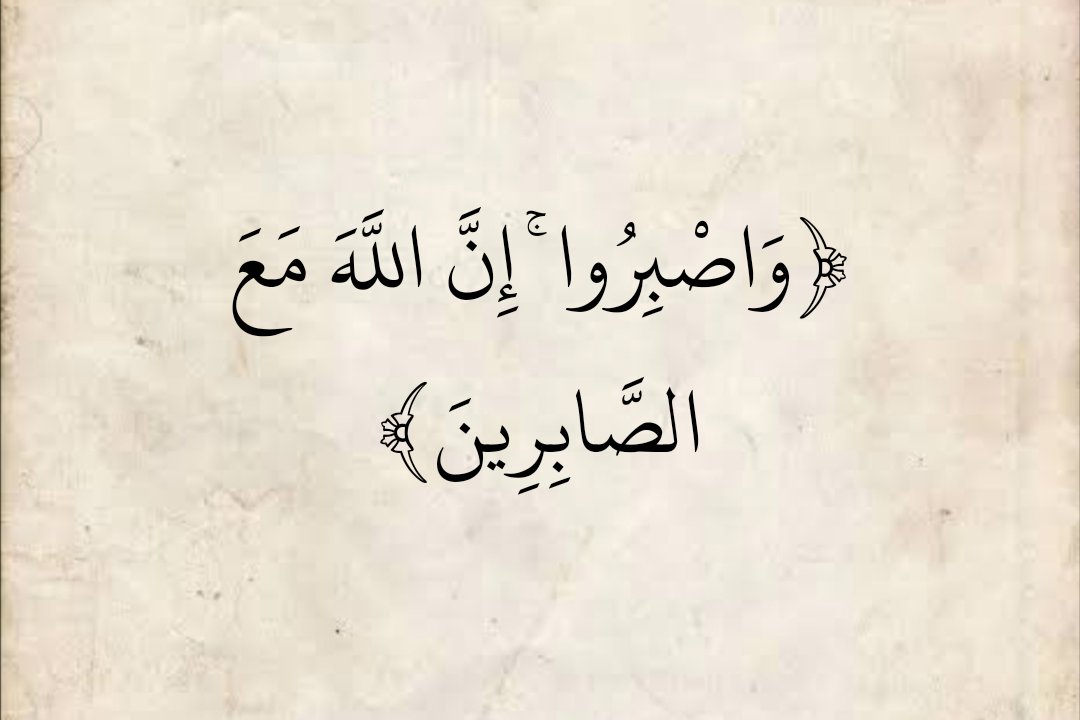 ﴿وَاصْبِرُوا ۚ إِنَّ اللَّهَ مَعَ
الصَّابِرِينَ﴾